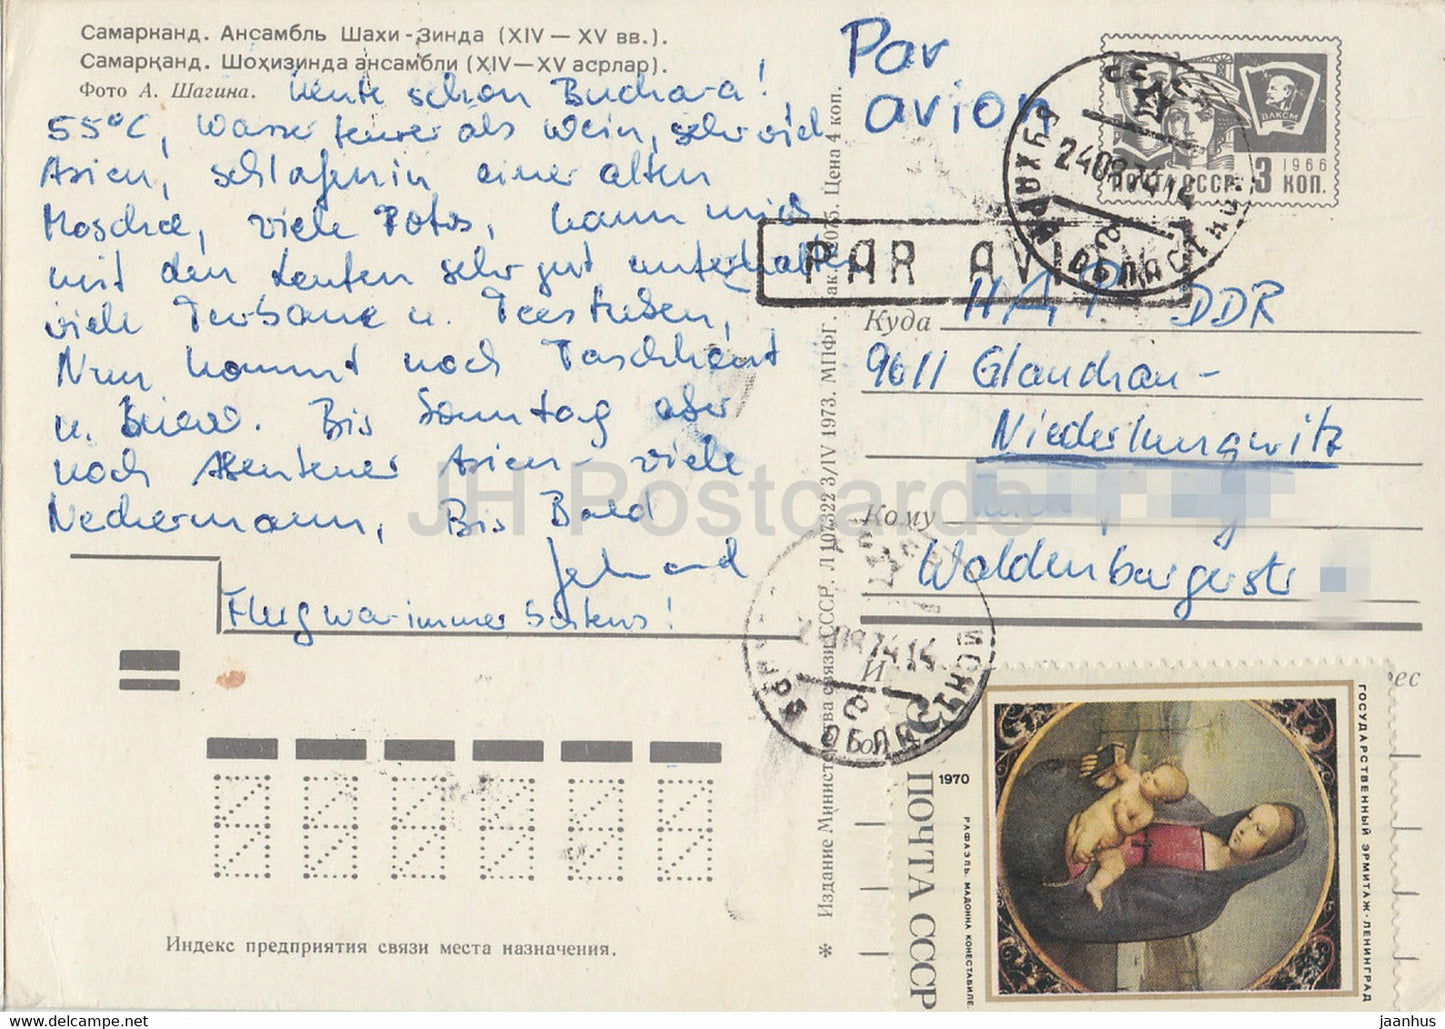 Самарканд. Ансамбль Шахи-Зинда (XIV — XV вв.).
Самарқанд. Шоҳизинда ансамбли (XIV—XV асрлар).
Фото А. Шагина.
Heute schon Buchara!
55°C, Wasser teurer als Wein, sehr viel
Asien, schlafen in einer alten
Moschee, viele Fotos, kann mich
mit den Leuten sehr gut unterhalten
viele Turbane u. Teestuben,
Nun kommt noch Taschkent
u. Bis Sonntag aber
noch Abenteuer Asien - viele
Neckermann, Bis Bald
Flug war immer
Par
avion
ПОЧТА СССР 3 КОП.
1966
ВЛКСМ
БУХАРА ОБЛАСТНОЙ
СССР
240874 12
PAR AVI
Куда НДР DDR
9611 Glauchau -
Niederlungwitz
Кому
Waldenburgerstr
74 14
И
рес
Издание Министерства связи СССР. Л 107322 3/IV 1973. МПФГ. Цена 4 коп.
Индекс предприятия связи места назначения.
ПОЧТА СССР
1970
РАФАЭЛЬ. МАДОННА КОНЕСТАБИЛЕ.
ГОСУДАРСТВЕННЫЙ ЭРМИТАЖ · ЛЕНИНГРАД
JH Postcards
https://www.jaanhus.com
jaanhus